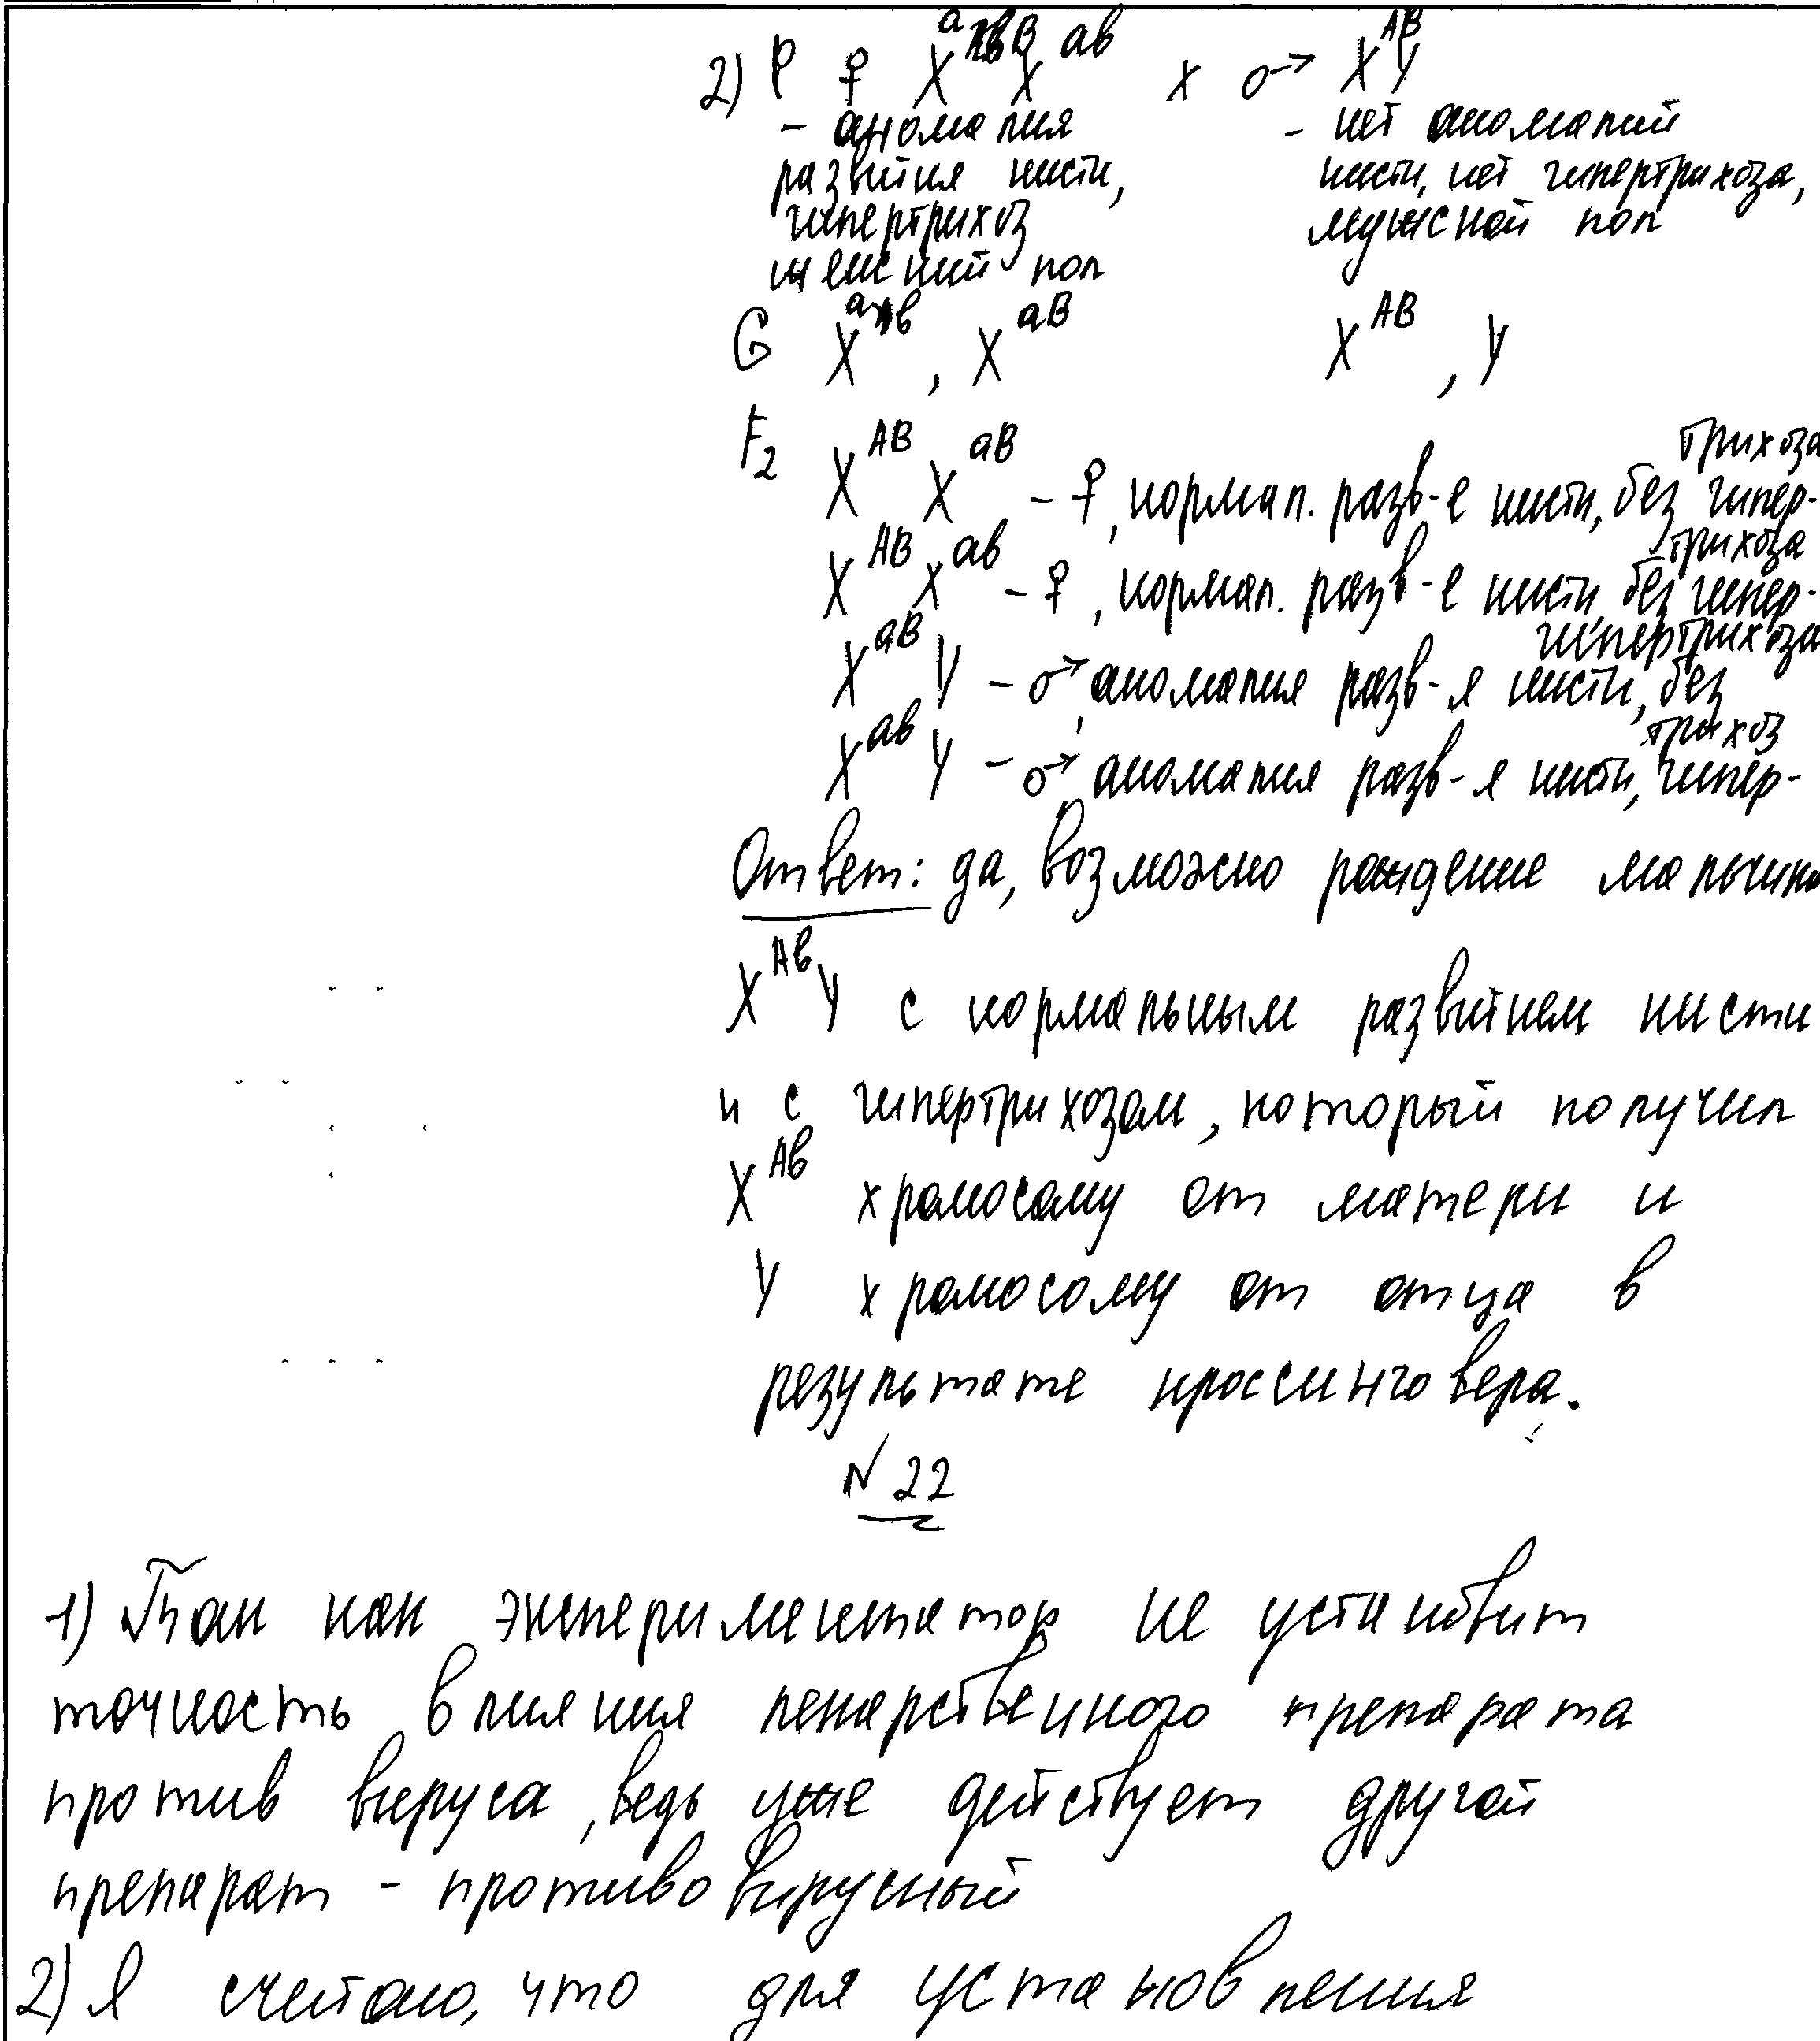 2) P ♀ X^aB X^ав x ♂ X^АВ Y
- аномалия - нет аномалий
развития кисти, кисти, нет гипертрихоза,
гипертрихоз мужской пол
женский пол
G X^ав, X^аВ X^АВ, Y
F2 X^АВ X^аВ - ♀, нормал. разв-е кисти, без гипер-
трихоза
X^АВ X^ав - ♀, нормал. разв-е кисти без гипер-
трихоза
X^аВ Y - ♂, аномалия разв-я кисти, без
гипертрихоза
X^ав Y - ♂ аномалия разв-я кисти, гипер-
трихоз
Ответ: да, возможно рождение мальчика
X^Ав Y с нормальным развитием кисти
и с гипертрихозом, который получил
X^Ав хромосому от матери и
Y хромосому от отца в
результате кроссинговера.
N 22
1) Так как экспериментатор не установит
точность влияния лекарственного препарата
против вируса, ведь уже действует другой
препарат - противовирусный
2) Я считаю, что для установления